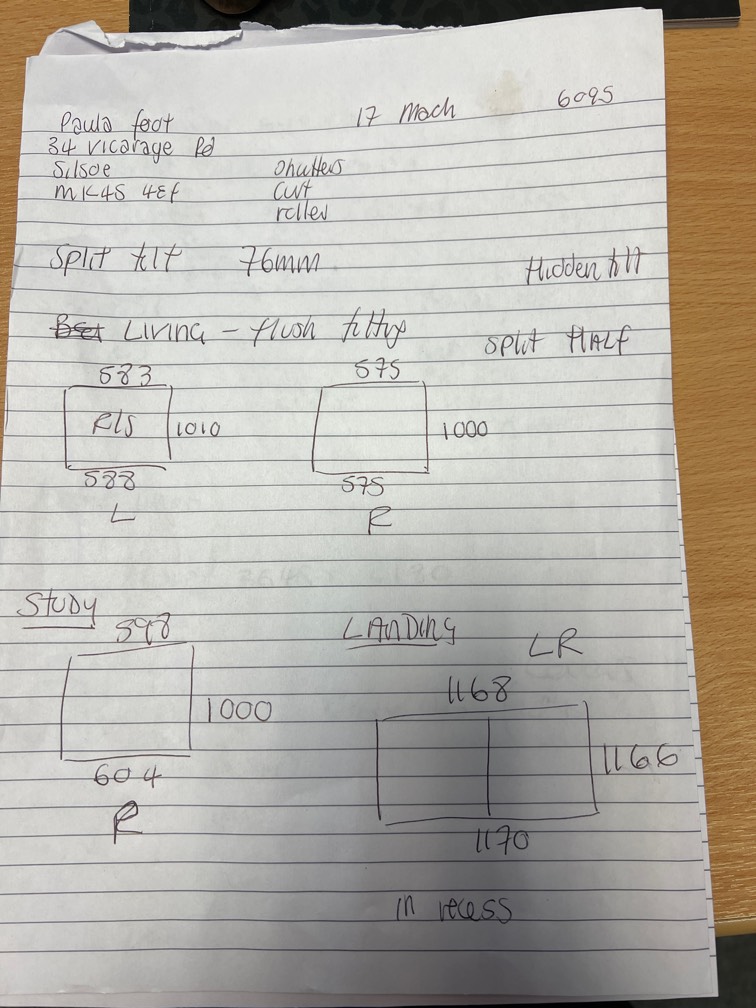 Paula foot
17 Mach
6095
34 vicarage Rd
Silsoe
shutters
MK45 4Ef
cut
roller
Split tilt 76mm
Hidden tilt
Living - flush fitting
Split HALF
583
575
R/S
1010
1000
588
575
L
R
STUDY
598
LANDING
LR
1168
1000
1166
604
R
1170
in recess